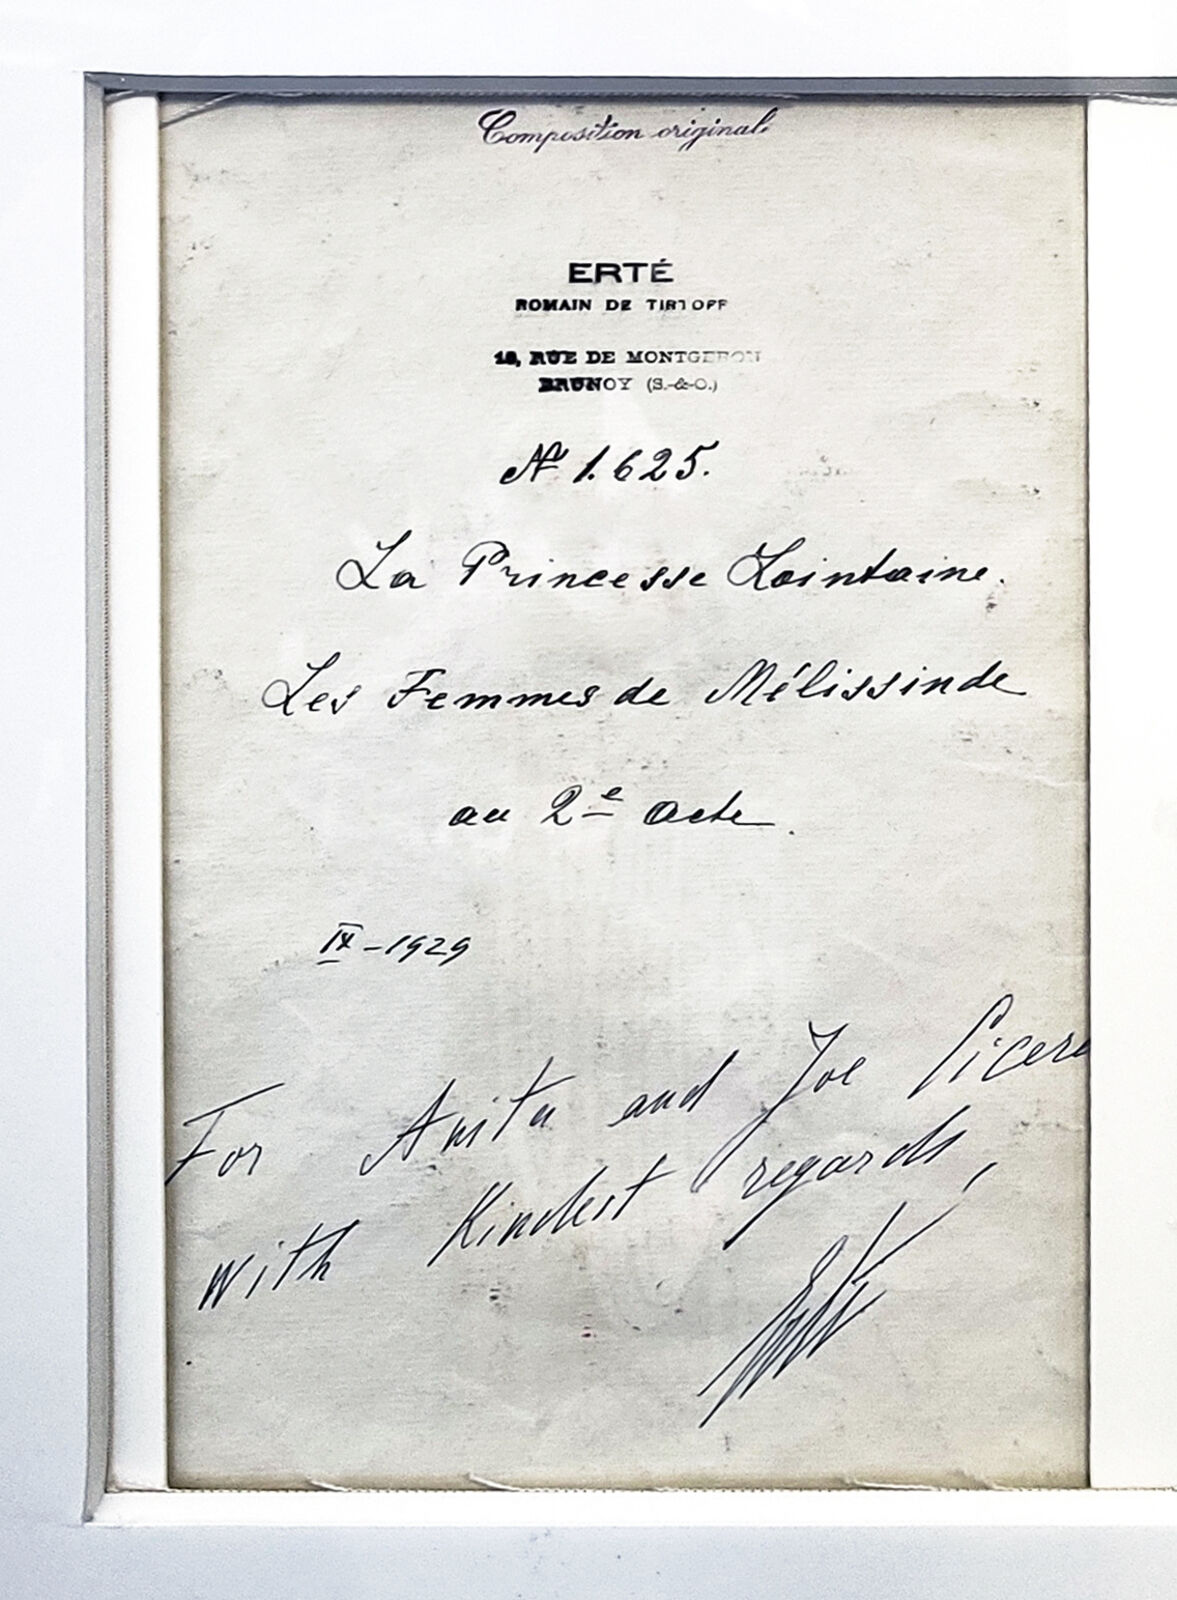 Composition originale
ERTÉ
ROMAIN DE TIRTOFF
18, RUE DE MONTGERON
BRUNOY (S.-&-O.)
Nº 1.625.
La Princesse Lointaine.
Les Femmes de Mélissinde
au 2e acte.
IX-1929
For Anita and Joe
With Kindest regards,
Erté